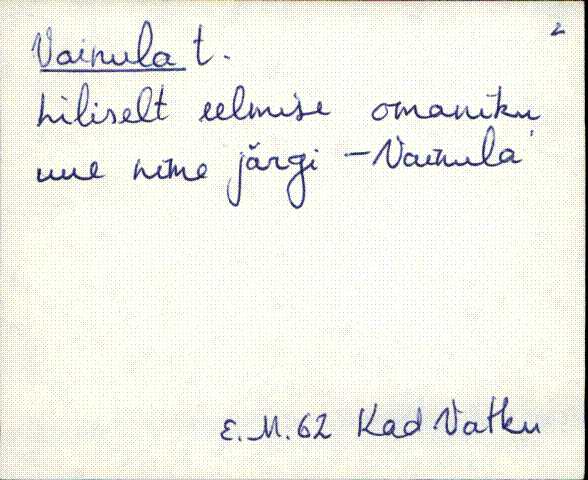 2
Vainula t.
hiliselt eelmise omaniku
uue nime järgi – Vainula
E.M. 62 Kad Vatku